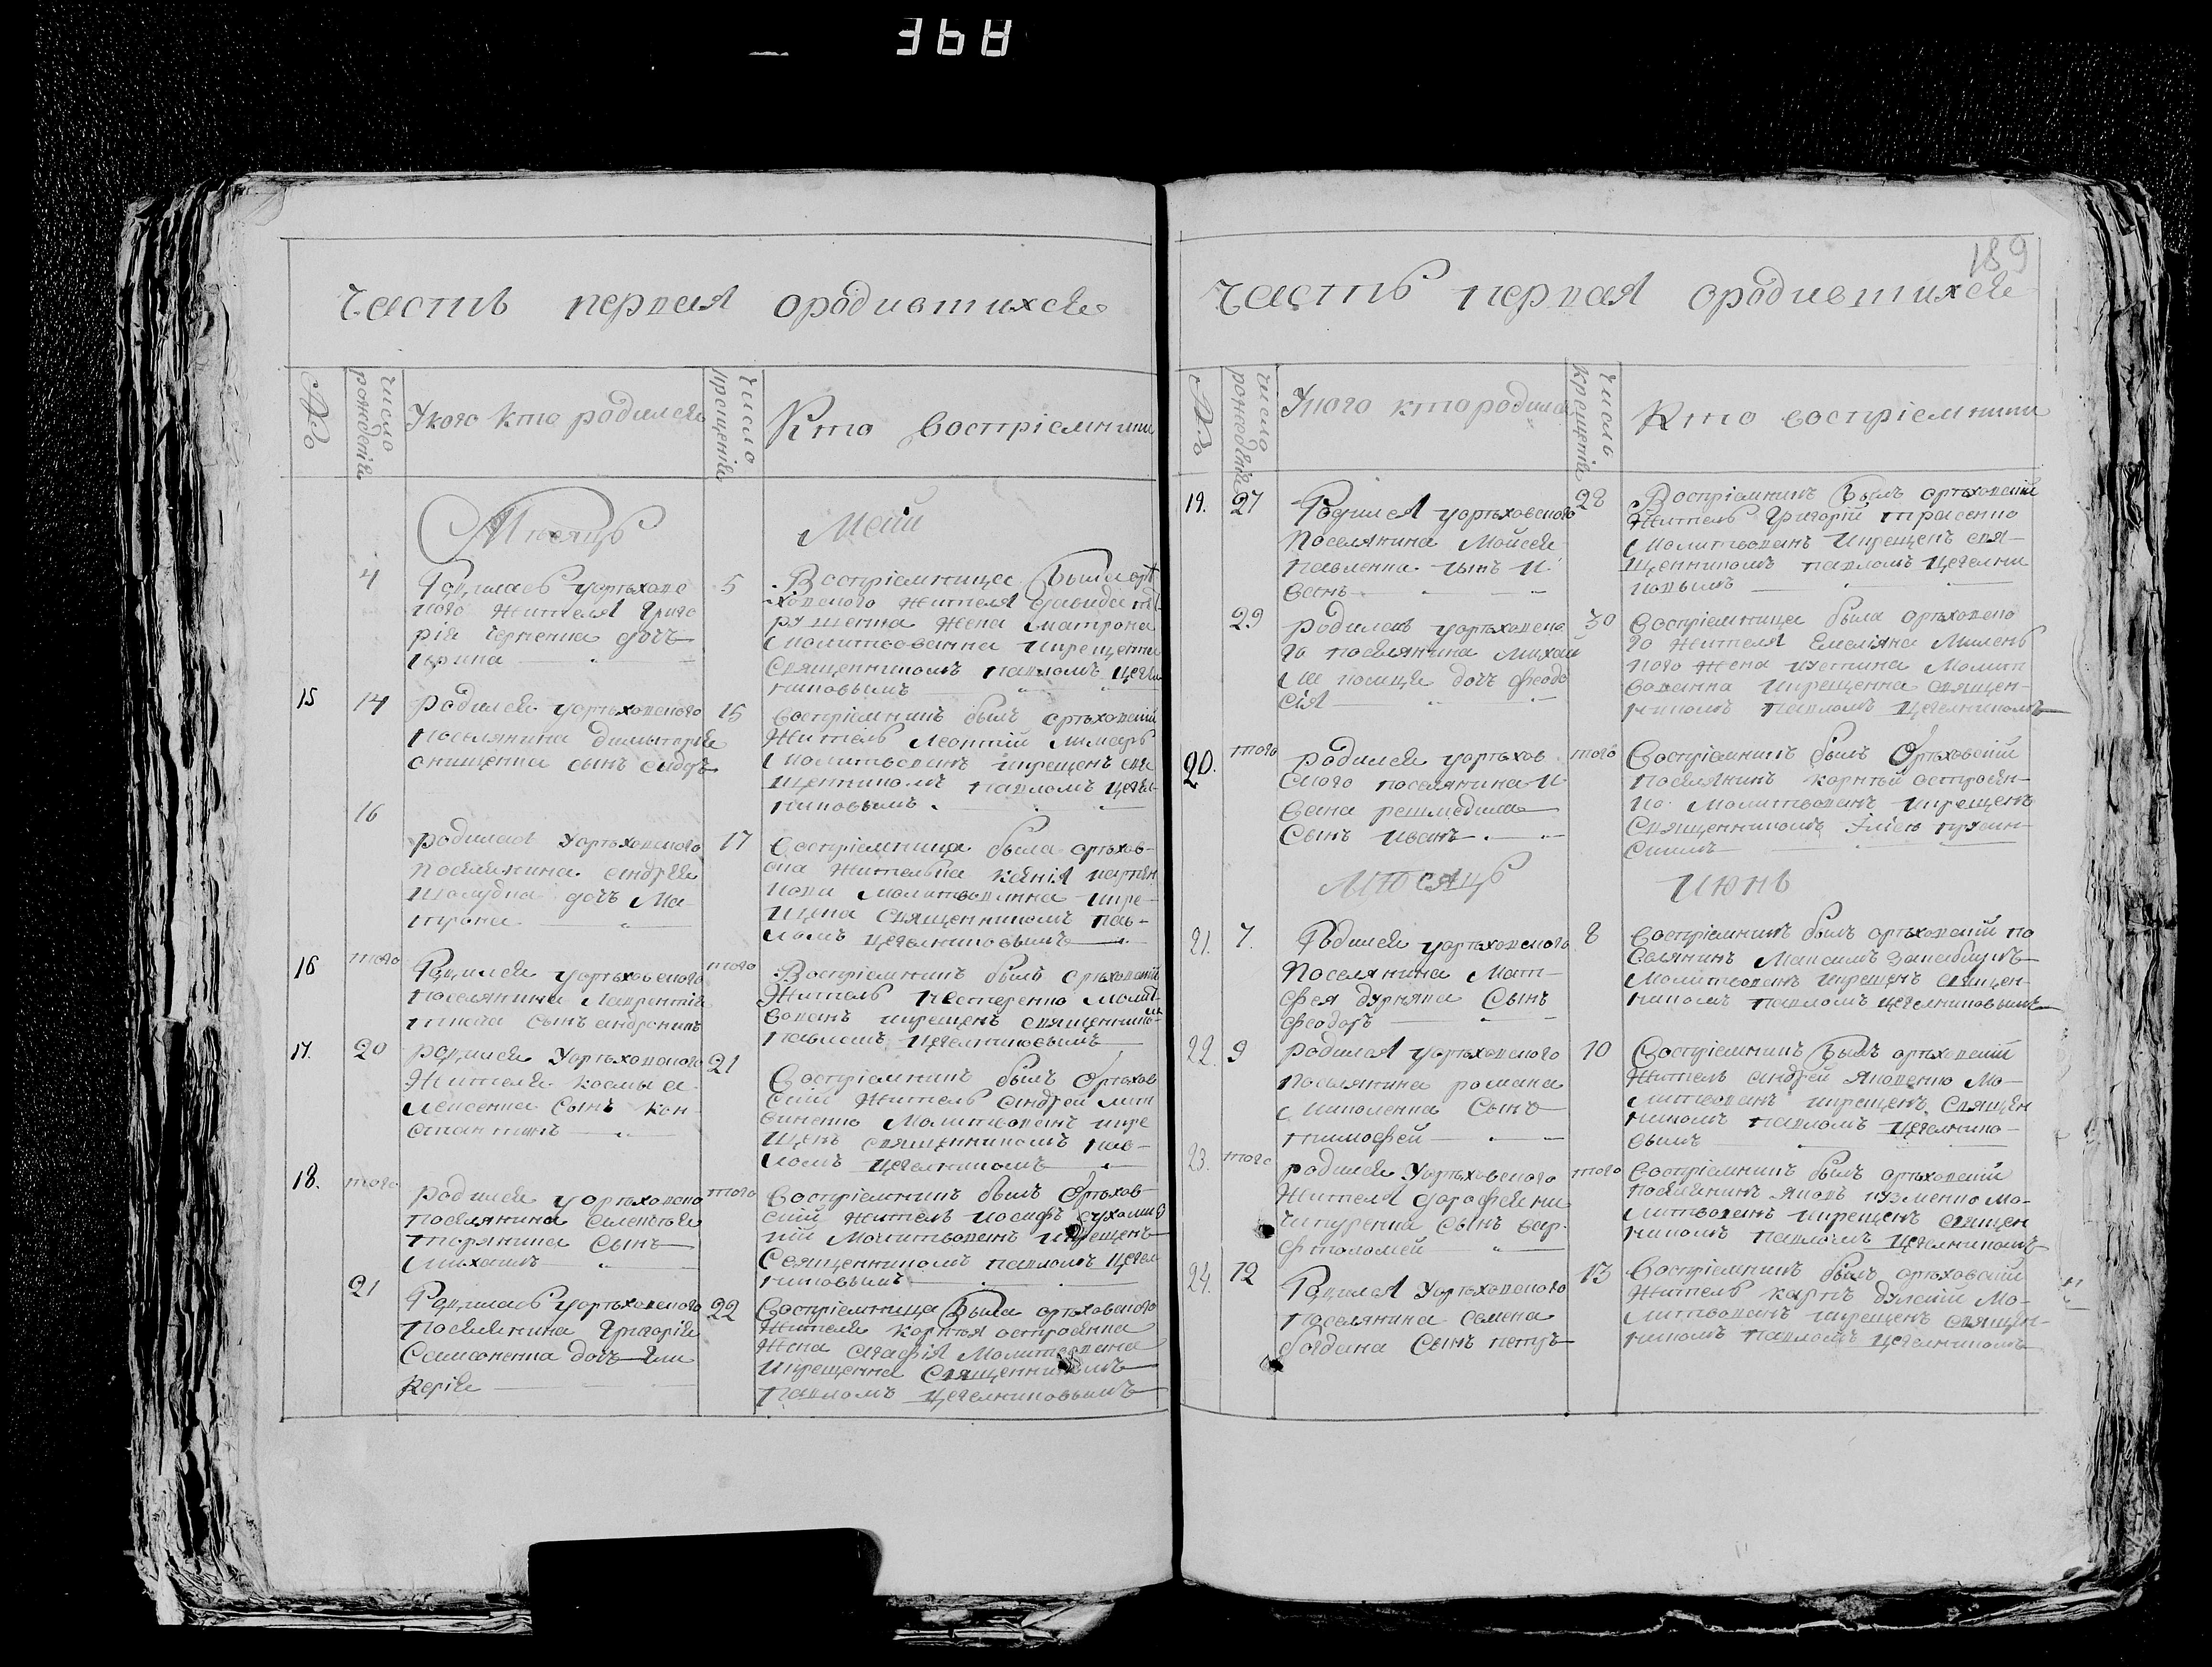 368
Часть первая ородившихся
№
число рождения
Укого кто родился
число крещения
Кто восприемники
Месяцъ
Маии
4
Родилась уорѣховс
кого жителя Григо
рія Черненка дочь
Ирина
5
Восприемница была орѣ
ховского жителя Давида
жена Матрона
молитвованна икрещенна
священникомъ павломъ цегел
никовымъ
15
14
родился уорѣховского
поселянина Димитрія
онищенка сынъ сидоръ
15
восприемникъ былъ орѣховскій
житель Леонтій лимарь
молитвованъ икрещенъ свя
щенникомъ павломъ цегел
никовымъ
16
родилася уорѣховского
поселянина андрея
шолудка дочь Ма
трона
17
восприемница была орѣхов
ска жителька ксенія
молитвованна икре
щена священникомъ пав
ломъ цегелниковымъ
16
того
Родился уорѣховского
поселянина Лаврентія
сынъ андроникъ
того
Восприемникъ былъ орѣховскій
житель нестеренко молит
вованъ икрещенъ священником
павломъ цегелниковымъ
17.
20
родился уорѣховского
жителя космы а
лексенка сынъ кон
стантинъ
21
восприемникъ былъ Орѣхов
скій житель андрей лит
виненко молитвованъ икре
щенъ священникомъ пав
ломъ цегелникомъ
18.
того
родился уорѣховского
поселянина
сынъ
михаилъ
того
восприемникъ былъ Орѣхов
скій житель иосифъ сухомли
молитвованъ икрещенъ
священникомъ павломъ цегел
никовымъ
21
Родилась уорѣховского
поселянина Григорія
Самсоненка дочь Гли
керія
22
восприемница была орѣховского
жителя корнѣя остроянка
жена агафія молитвована
икрещенна священникомъ
павломъ цегелниковымъ
189
часть первая ородившихся
№
число рождения
Укого кто родился
число крещения
Кто восприемники
19.
27
Родился уорѣховского
поселянина Мойсея
павленка сынъ И
ванъ
28
Восприемникъ былъ орѣховскій
житель Григорій тарасенко
молитвованъ икрещенъ свя
щенникомъ павломъ цегелни
ковымъ
29
родилась уорѣховско
го поселянина михай
дочь феодо
сія
30
восприемница была орѣховско
го жителя Емеліяна
жена устина молит
вованна икрещенна священ
никомъ павломъ цегелникомъ
20.
того
родился уорѣхов
ского поселянина и
вана решмедила
сынъ иванъ
того
восприемникъ былъ Орѣховскій
поселянинъ корнѣй остроян
ко молитвованъ икрещенъ
священникомъ
месяцъ
июнь
21.
7.
Родился уорѣховского
поселянина мат
фея дурняка сынъ
феодоръ
8
восприемникъ былъ орѣховскій по
селянинъ максимъ
молитвованъ икрещенъ священ
никомъ павломъ цегелниковымъ
22.
9
родился уорѣховского
поселянина романа
миколенка сынъ
тимофей
10
восприемникъ былъ орѣховскій
житель андрей яковенко мо
литвованъ икрещенъ священ
никомъ павломъ цегелнико
вымъ
23.
того
родился уорѣховского
жителя дорофея ни
чипуренка сынъ вар
фоломей
того
восприемникъ былъ орѣховскій
поселянинъ яковъ кузменко мо
литвованъ икрещенъ священ
никомъ павломъ цегелникомъ
24.
12
Родился уорѣховского
поселянина семена
богдана сынъ петръ
13
восприемникъ былъ орѣховскій
житель карпъ дулскій мо
литвованъ икрещенъ священ
никомъ павломъ цегелникомъ